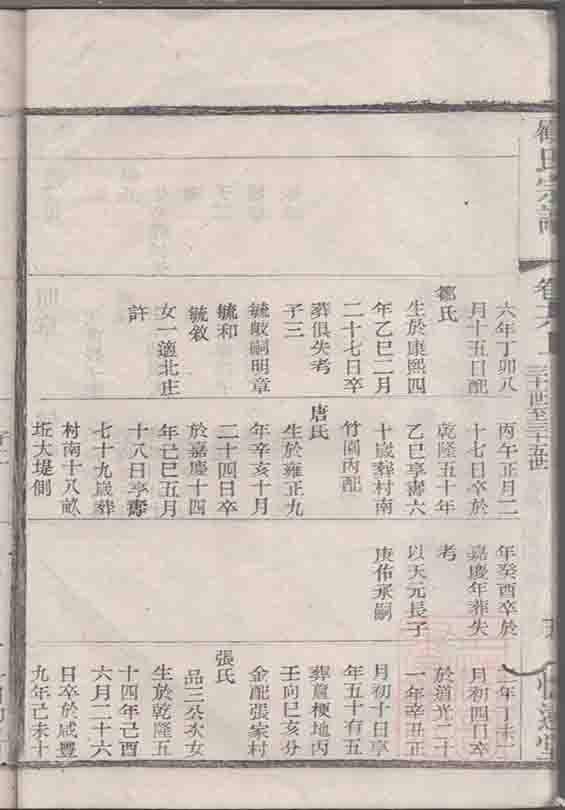 氏宗譜
六年丁卯八
月十五日配
鄒氏
生於康熙四
年乙巳二月
二十七日卒
葬俱失考
子三
毓皎嗣明章
毓和
毓敘
女一適北庄
許
丙午正月二
十七日卒於
乾隆五十年
乙巳享壽六
十歲葬村南
竹園內配
唐氏
生於雍正九
年辛亥十月
二十四日卒
於嘉慶十四
年己巳五月
十八日享壽
七十九歲葬
村南十八畝
坵大堤側
年癸酉卒於
嘉慶年葬失
考
以天元長子
庚佑承嗣
二年丁未二
月初四日卒
於道光二十
一年辛丑正
月初十日享
年五十有五
葬蘆梗地丙
壬向巳亥分
金配張家村
張氏
品三公次女
生於乾隆五
十四年己酉
六月二十六
日卒於咸豐
九年己未十